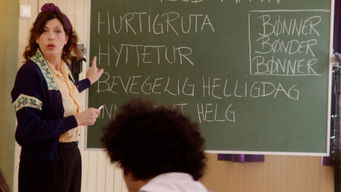 HURTIGRUTA
HYTTETUR
BEVEGELIG HELLIGDAG
HELG
BØNNER
BØNDER
BØNNER